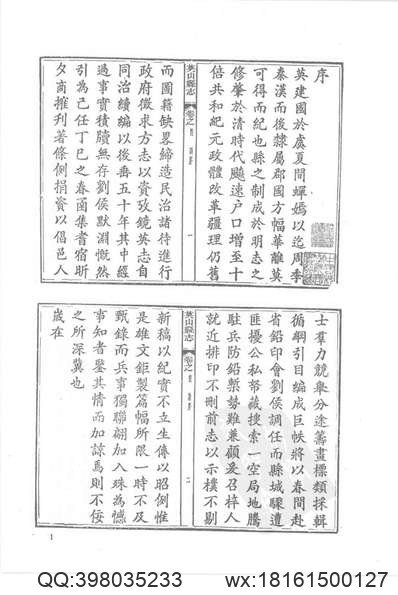 序
英建國於虞夏間蟬嫣以迄周季
秦漢而後隸屬郡國方幅華離莫
可得而紀也縣之制成於明志之
修肇於清時代飈速户口增至十
倍共和紀元政體改革疆理仍舊
英山縣志
卷之
一
而圖籍缺畧締造民治諸待進行
政府徵求方志以資攷鏡英志自
同治續編以後番五十年其中經
過事實積牘無存劉侯默淵慨然
引為己任丁巳之春萄集耆宿昕
夕商搉刋著條例捐資以倡邑人
士羣力競舉分途籌畫標類採輯
循綱引目編成巨帙將以春間赴
省鉛印會劉侯調任而縣城驟遭
匪擾公私努藏搜索一空局地騰
駐兵防鉛槧勢難兼顧爰召梓人
就近排印不刪前志以示樸不剔
英山縣志
卷之
二
新稿以紀實不立生傳以昭例惟
是雄文鉅製篇幅所限一時不及
甄錄而兵事獨聯翩加入殊為憾
事知者鑒其情而加諒焉則不佞
之所深冀也
歲在
1
QQ:398035233
wx:18161500127